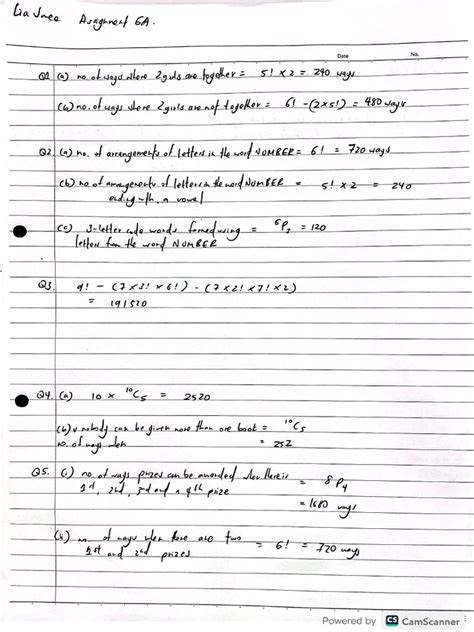 Lia Jnee Assignment 6A.
Date No.
Q1. (a) no. of ways where 2 girls are together = 5! x 2 = 240 ways
(b) no. of ways where 2 girls are not together = 6! - (2x5!) = 480 ways
Q2. (a) no. of arrangements of letters in the word NUMBER = 6! = 720 ways
(b) no. of arrangements of letters in the word NUMBER = 5! x 2 = 240
ending with a vowel
(c) 3-letter code words formed using = ⁶P₃ = 120
letters from the word NUMBER
Q3. 9! - (7 x 3! x 6!) - (7 x 2! x 7! x 2)
= 191520
Q4. (a) 10 x ¹⁰C₅ = 2520
(b) nobody can be given more than one book = ¹⁰C₅
no. of ways when = 252
Q5. (i) no. of ways prizes can be awarded when there is = 8P₄
1st, 2nd, 3rd and a 4th prize
= 1680 ways
(ii) no. of ways when there are two = 6! = 720 ways
1st and 2nd prizes
Powered by CS CamScanner